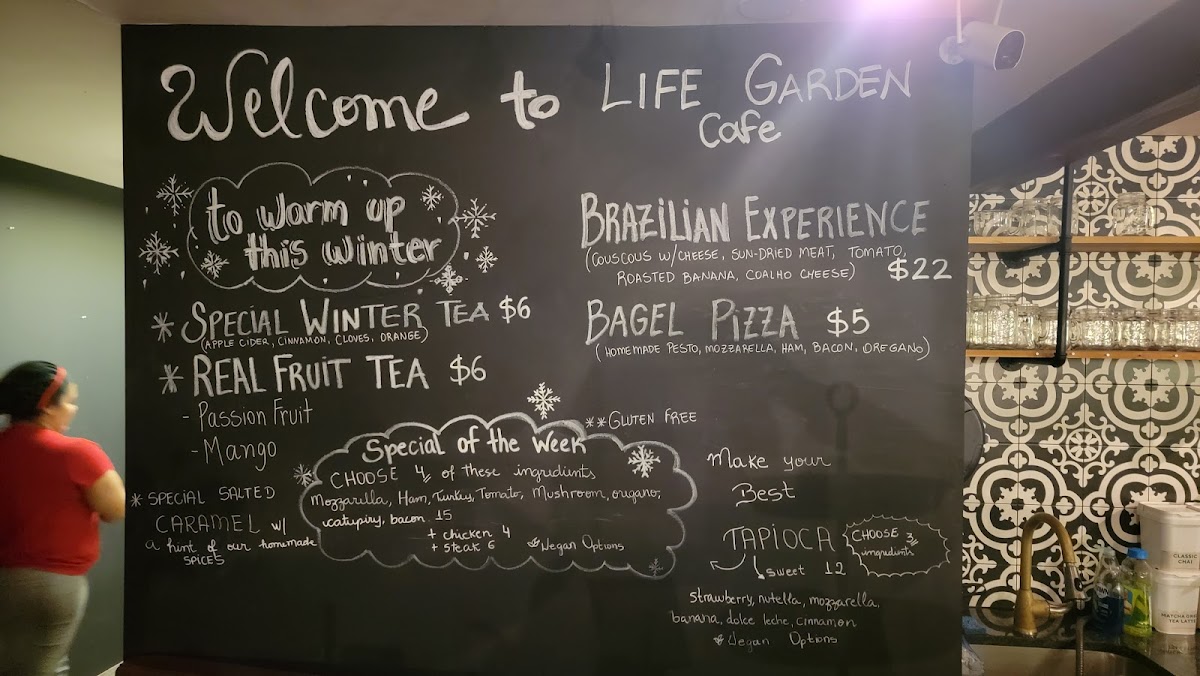 Welcome to LIFE GARDEN
Cafe
to warm up
this winter
* SPECIAL WINTER TEA $6
(APPLE CIDER, CINNAMON, CLOVES, ORANGE)
* REAL FRUIT TEA $6
- Passion Fruit
- Mango
* SPECIAL SALTED
CARAMEL w/
a hint of our homemade
SPICES
BRAZILIAN EXPERIENCE
(COUSCOUS W/CHEESE, SUN-DRIED MEAT, TOMATO,
ROASTED BANANA, COALHO CHEESE) $22
BAGEL PIZZA $5
(HOMEMADE PESTO, MOZZARELLA, HAM, BACON, OREGANO)
**GLUTEN FREE
Special of the Week
CHOOSE 4 of these ingredients
Mozzarilla, Ham, Turky, Tomato, Mushroom, oregano,
catupiry, bacon 15
+ chicken 4
+ steak 6
Vegan Options
Make your
Best
TAPIOCA
CHOOSE 3
ingredients
sweet 12
strawberry, nutella, mozzarella,
banana, dolce leche, cinnamon
Vegan Options
CLASSIC
CHAI
MATCHA GREEN
TEA LATTE